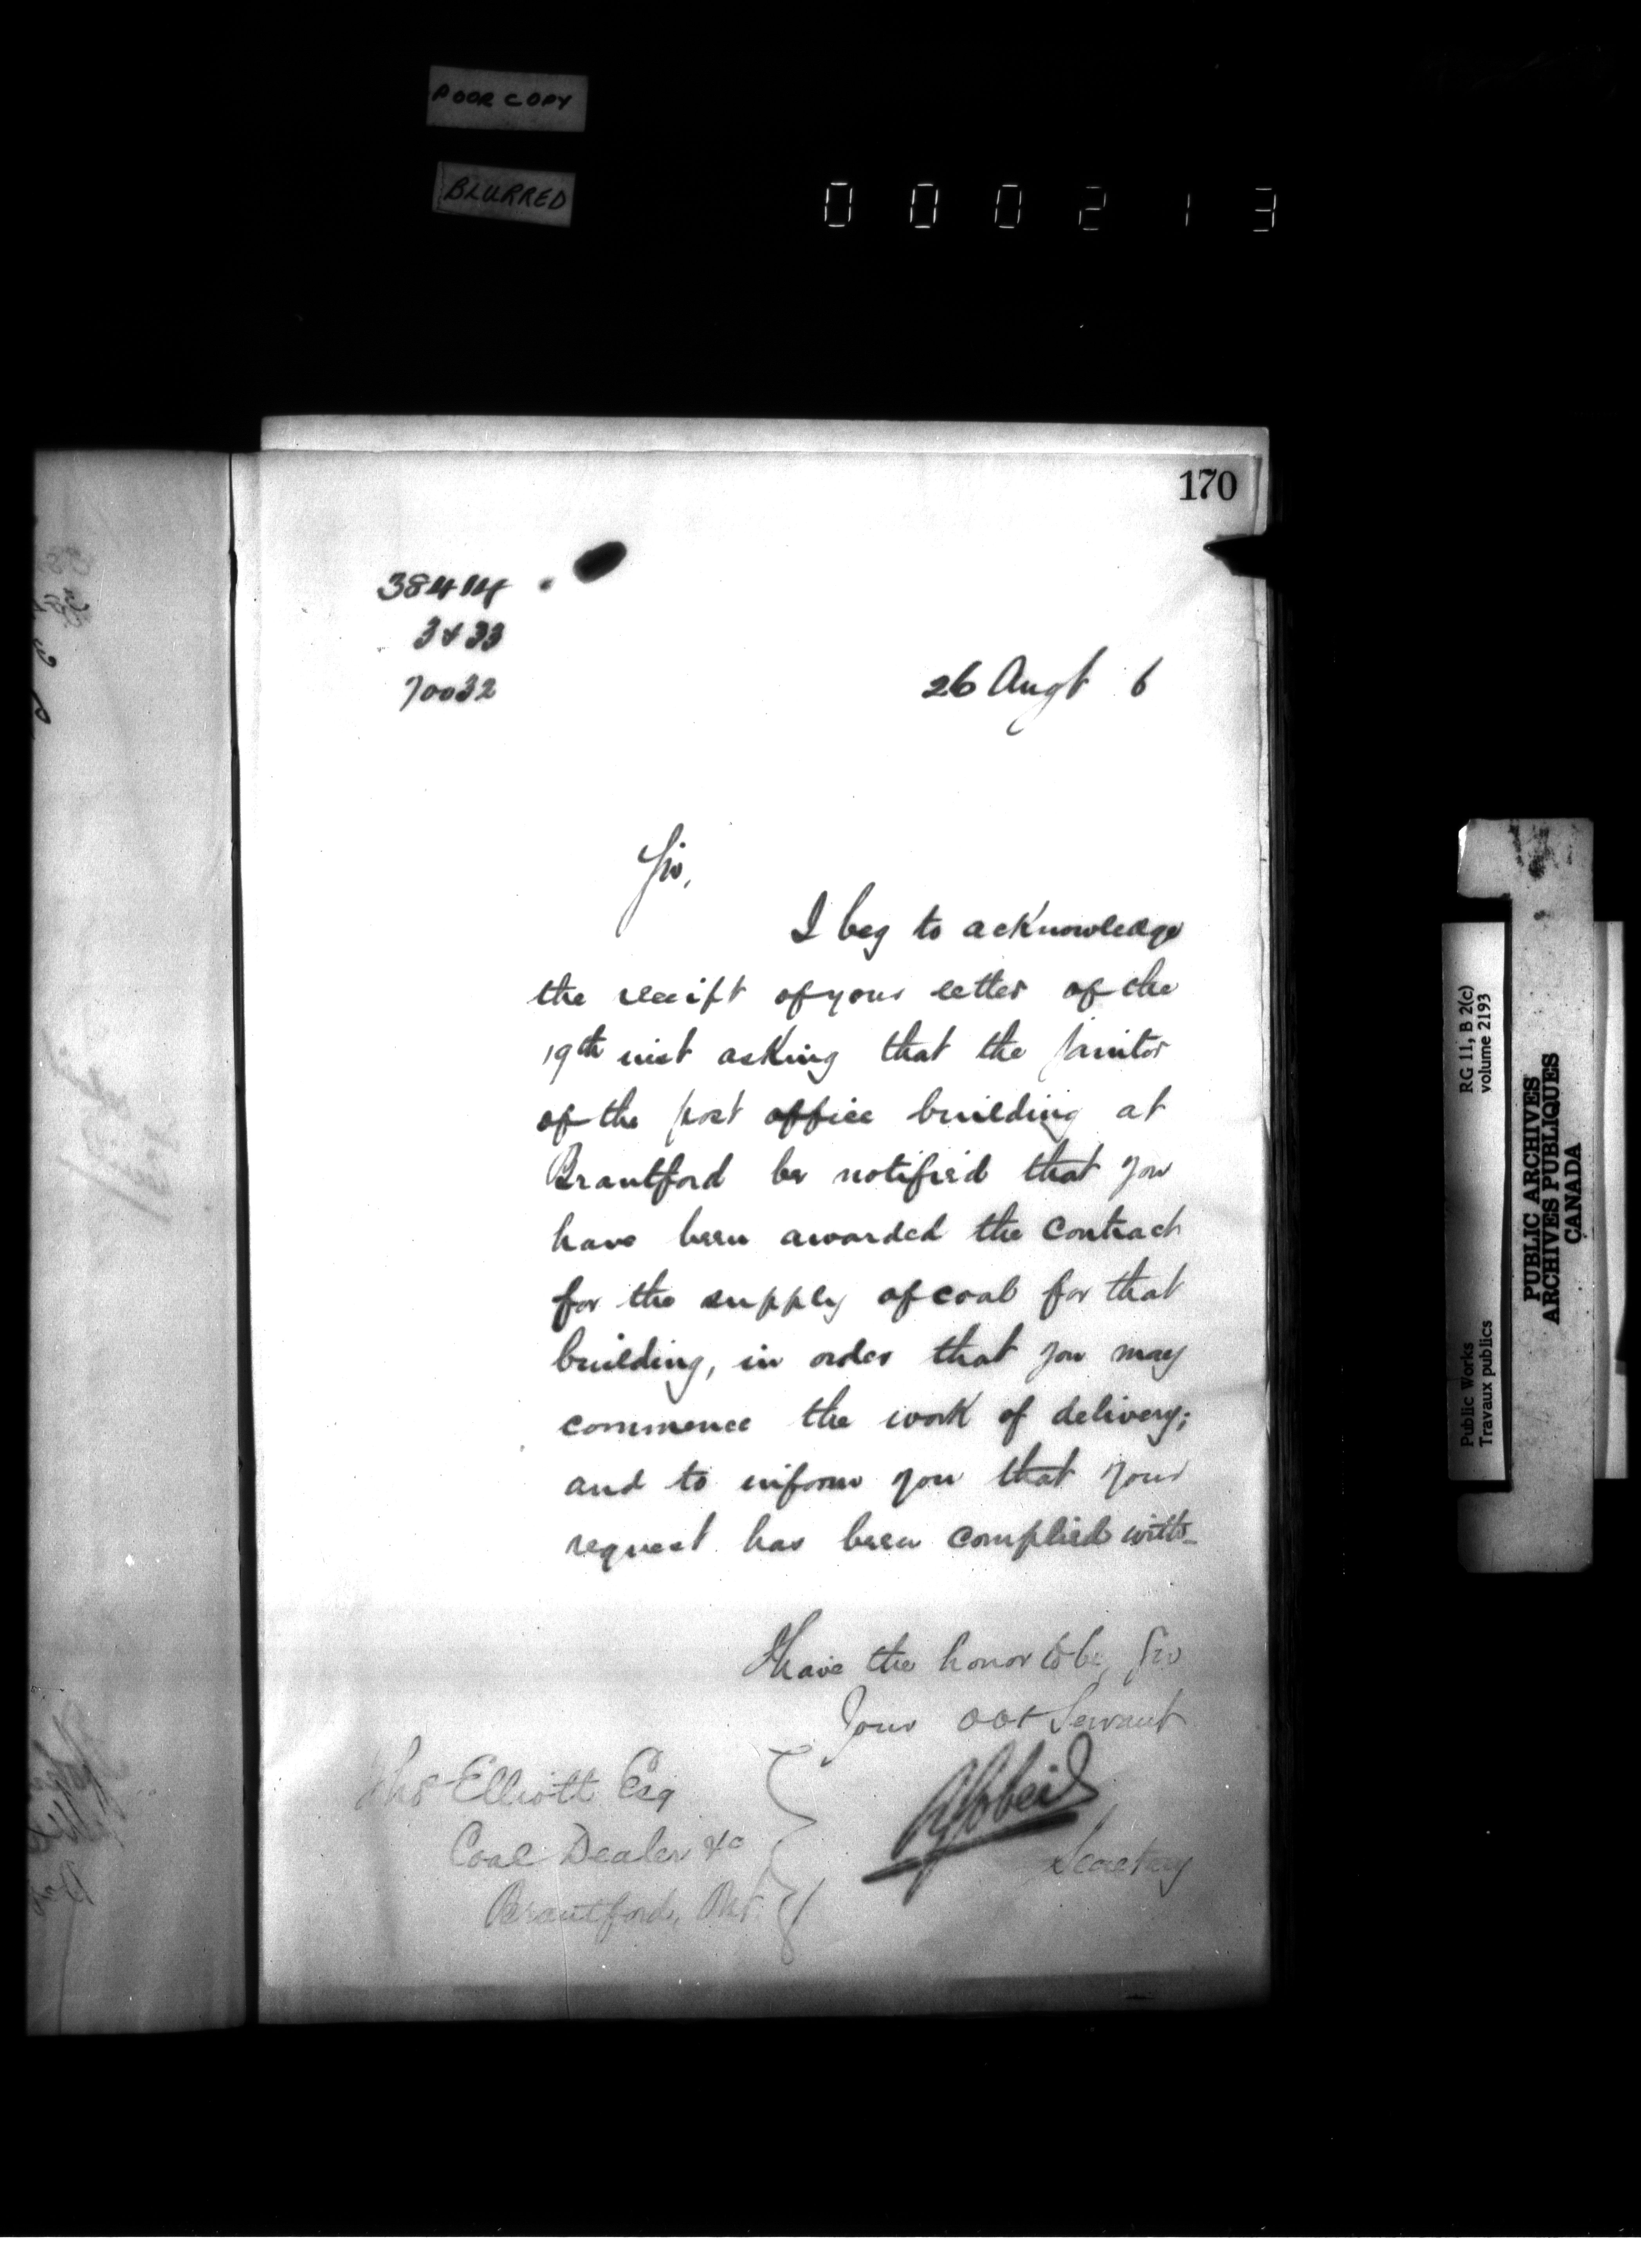 POOR COPY
BLURRED
0 0 0 2 1 3
170
38414
3433
70032
26 Augt 6
Sir,
I beg to acknowledge
the receipt of your letter of the
19th inst asking that the janitor
of the post office building at
Brantford be notified that you
have been awarded the contract
for the supply of coal for that
building, in order that you may
commence the work of delivery;
and to inform you that your
request has been complied with_
I have the honor to be, Sir
Your obt Servant
Secretary
Thos Elliott Esq
Coal Dealer &c
Brantford, Ont.
RG 11, B 2(c)
volume 2193
Public Works
Travaux publics
PUBLIC ARCHIVES
ARCHIVES PUBLIQUES
CANADA